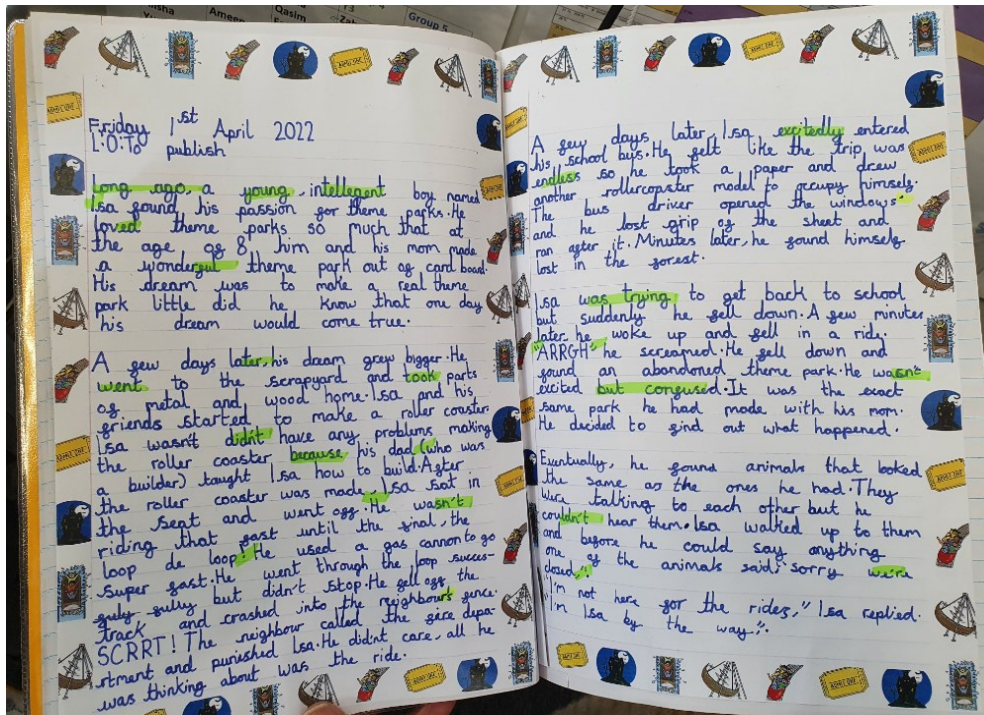 Ameen
Qasim
Group 5
Friday 1st April 2022
L.O:To publish
Long ago, a young, intellegent boy named
Isa found his passion for theme parks. He
loved theme parks so much that at
the age of 8, him and his mom made
a wonderful theme park out of card board.
His dream was to make a real theme
park little did he know that one day
his dream would come true.
A few days later, his dream grew bigger. He
went to the scrapyard and took parts
of metal and wood home. Isa and his
friends started to make a roller coaster.
Isa wasn't didn't have any problems making
the roller coaster because his dad (who was
a builder) taught Isa how to build. After
the roller coaster was made, Isa sat in
the seat and went off. He wasn't
riding that fast until the final, the
loop de loop! He used a gas cannon to go
super fast. He went through the loop succes-
fuly fully but didn't stop. He fell off the
track and crashed into the neighbours fence.
SCRRT! The neighbour called the fire depa-
rtment and punished Isa. He didn't care, all he
was thinking about was the ride.
A few days later, Isa excitedly entered
his school bus. He felt like the trip was
endless so he took a paper and drew
another rollercoaster model to occupy himself.
The bus driver opened the windows
and he lost grip of the sheet and
ran after it. Minutes later, he found himself
lost in the forest.
Isa was trying to get back to school
but suddenly he fell down. A few minutes
later, he woke up and fell in a ride.
"ARRGH" he screamed. He fell down and
found an abandoned theme park. He wasn't
excited but confused. It was the exact
same park he had made with his mom.
He decided to find out what happened.
Eventually, he found animals that looked
the same as the ones he had. They
were talking to each other but he
couldn't hear them. Isa walked up to them
and before he could say anything
one of the animals said "sorry we're
closed,"
"I'm not here for the rides," Isa replied.
"I'm Isa by the way".